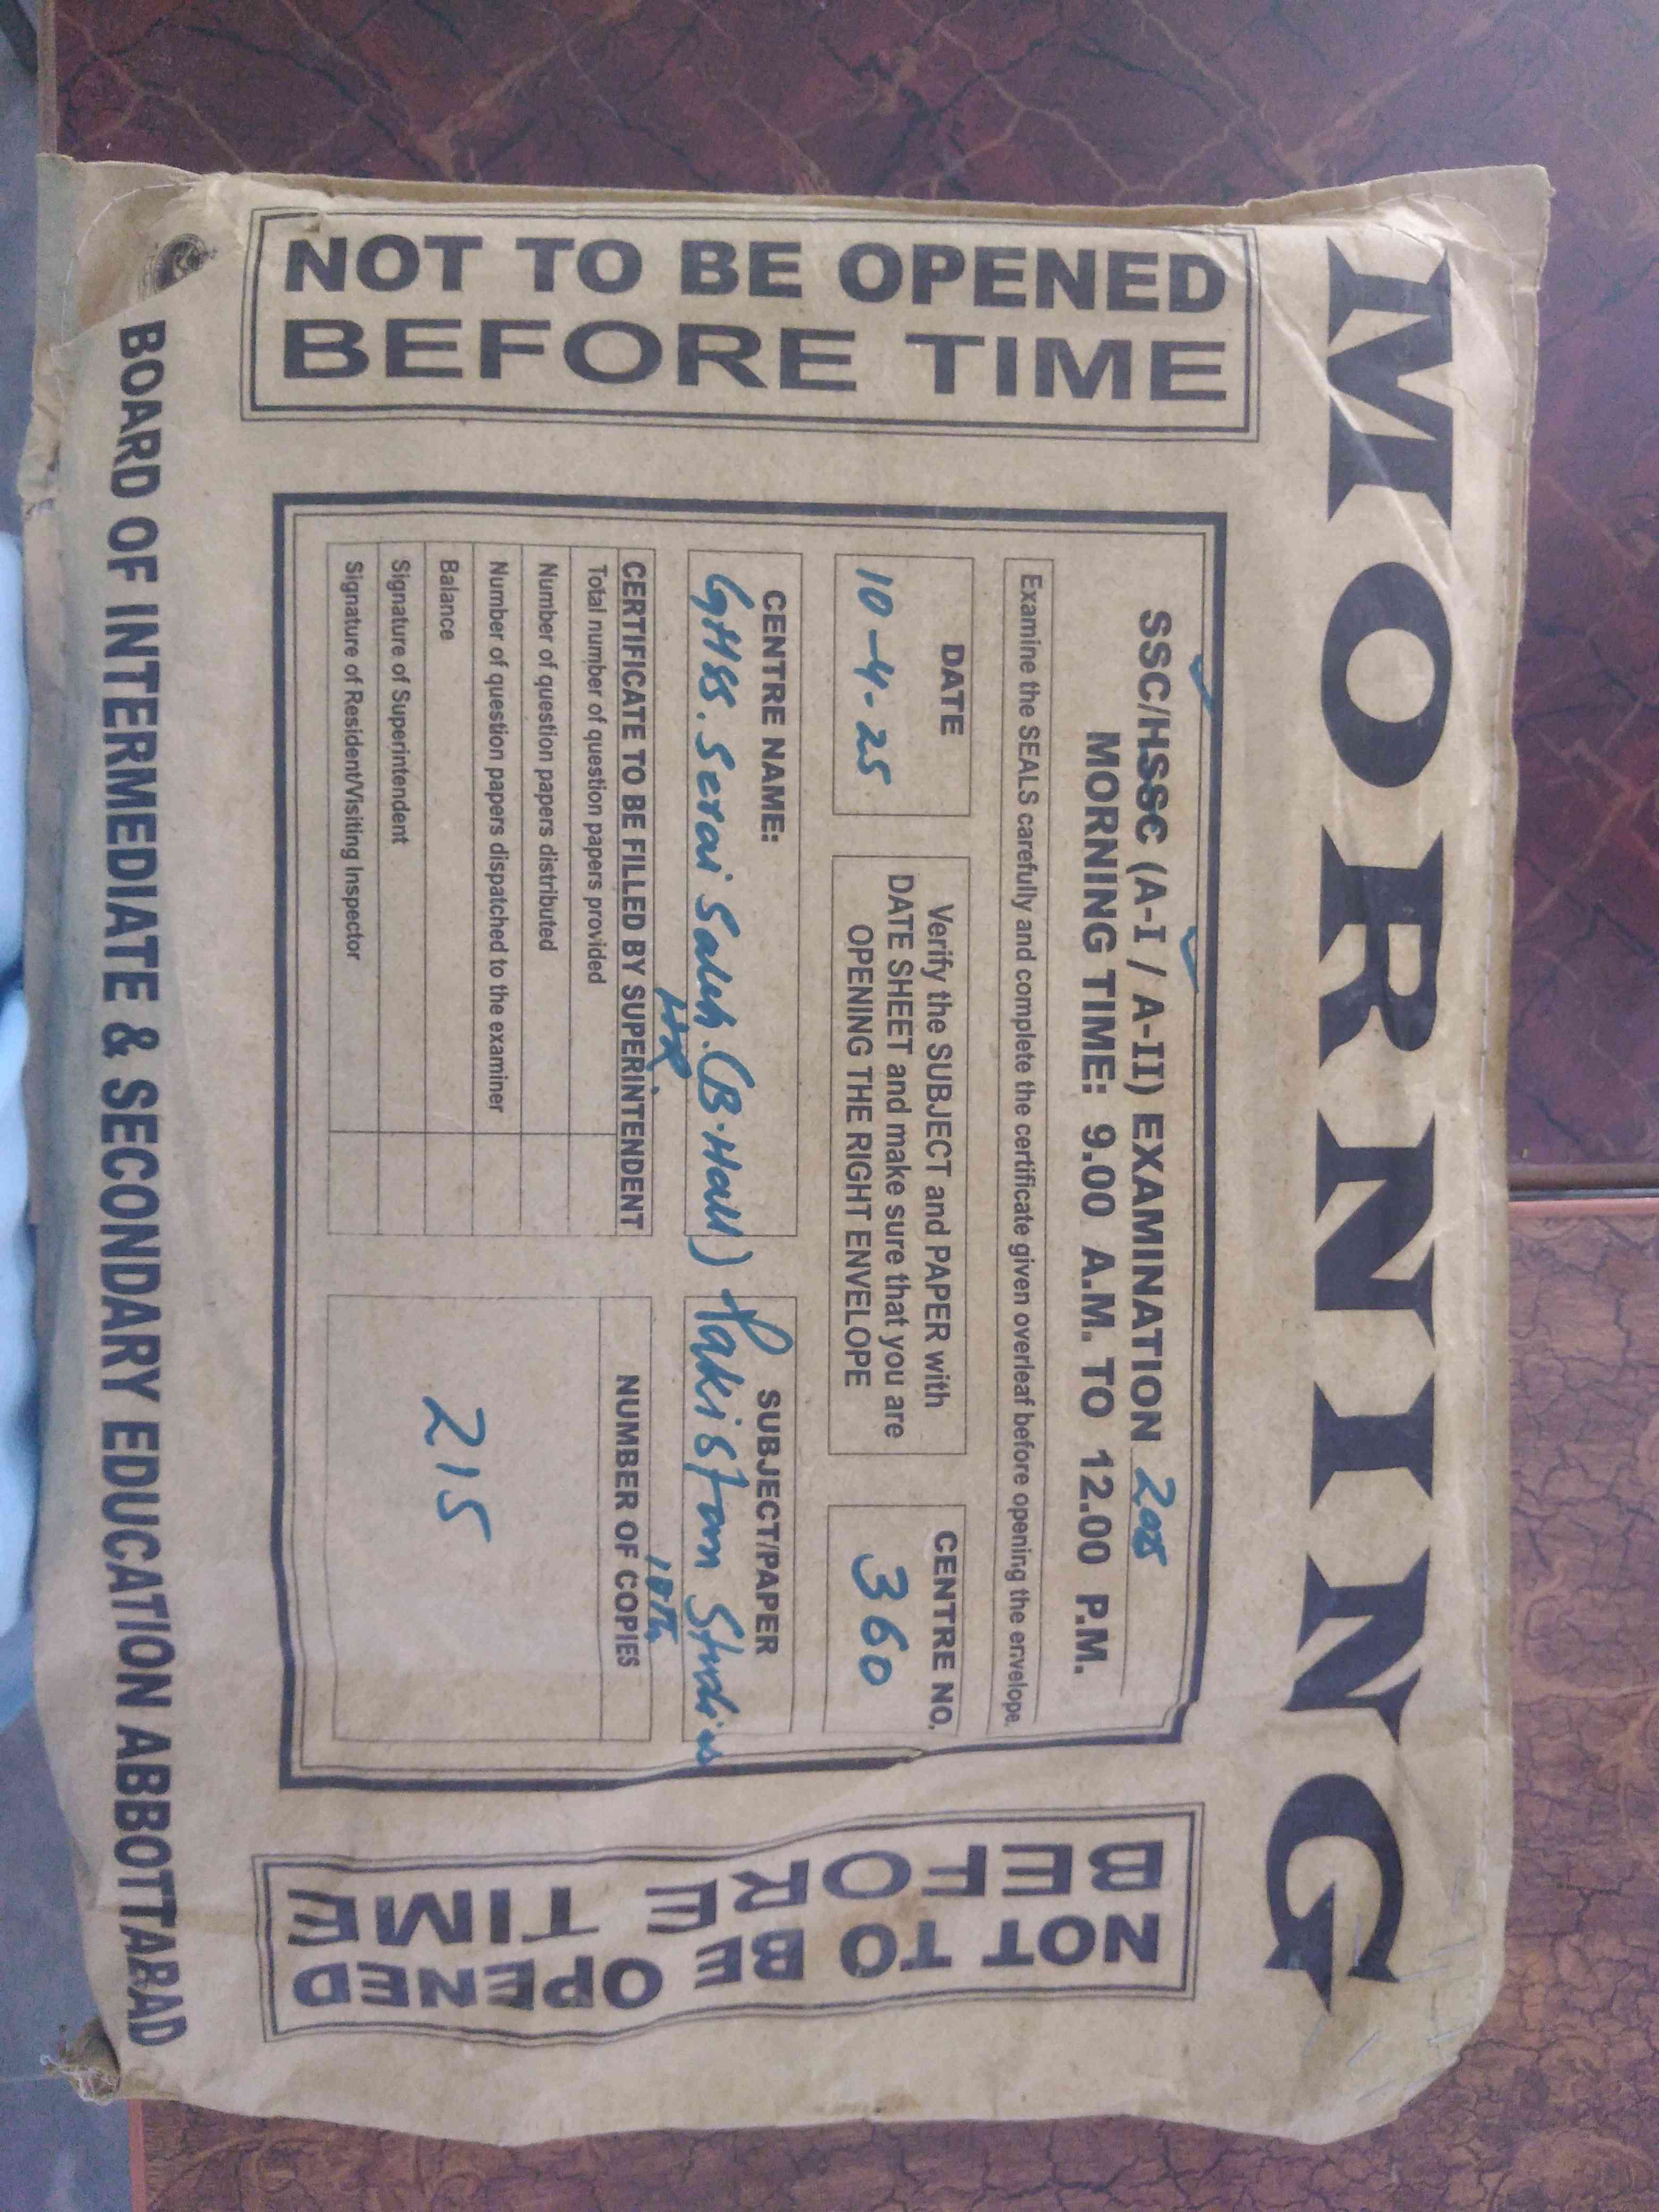 MORNING
NOT TO BE OPENED
BEFORE TIME
SSC/HSSC (A-I / A-II) EXAMINATION 2025
MORNING TIME: 9.00 A.M. TO 12.00 P.M.
Examine the SEALS carefully and complete the certificate given overleaf before opening the envelope
DATE
10-4-25
Verify the SUBJECT and PAPER with
DATE SHEET and make sure that you are
OPENING THE RIGHT ENVELOPE
CENTRE NO.
360
CENTRE NAME:
GHSS. Serai Saleh. (B.Hall)
HR.
SUBJECT/PAPER
Pakistan Studies
10th
CERTIFICATE TO BE FILLED BY SUPERINTENDENT
Total number of question papers provided
Number of question papers distributed
Number of question papers dispatched to the examiner
Balance
Signature of Superintendent
Signature of Resident/Visiting Inspector
NUMBER OF COPIES
215
NOT TO BE OPENED
BEFORE TIME
BOARD OF INTERMEDIATE & SECONDARY EDUCATION ABBOTTABAD